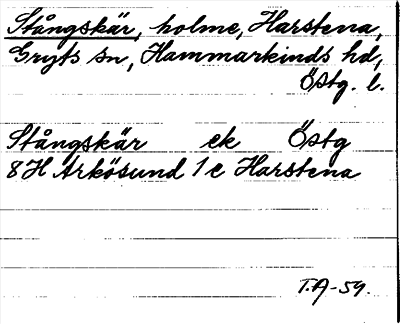 Stångskär, holme, Harstena,
Gryts sn, Hammarkinds hd,
Östg. l.
Stångskär ek Östg
8H Arkösund 1e Harstena
T.A-59.